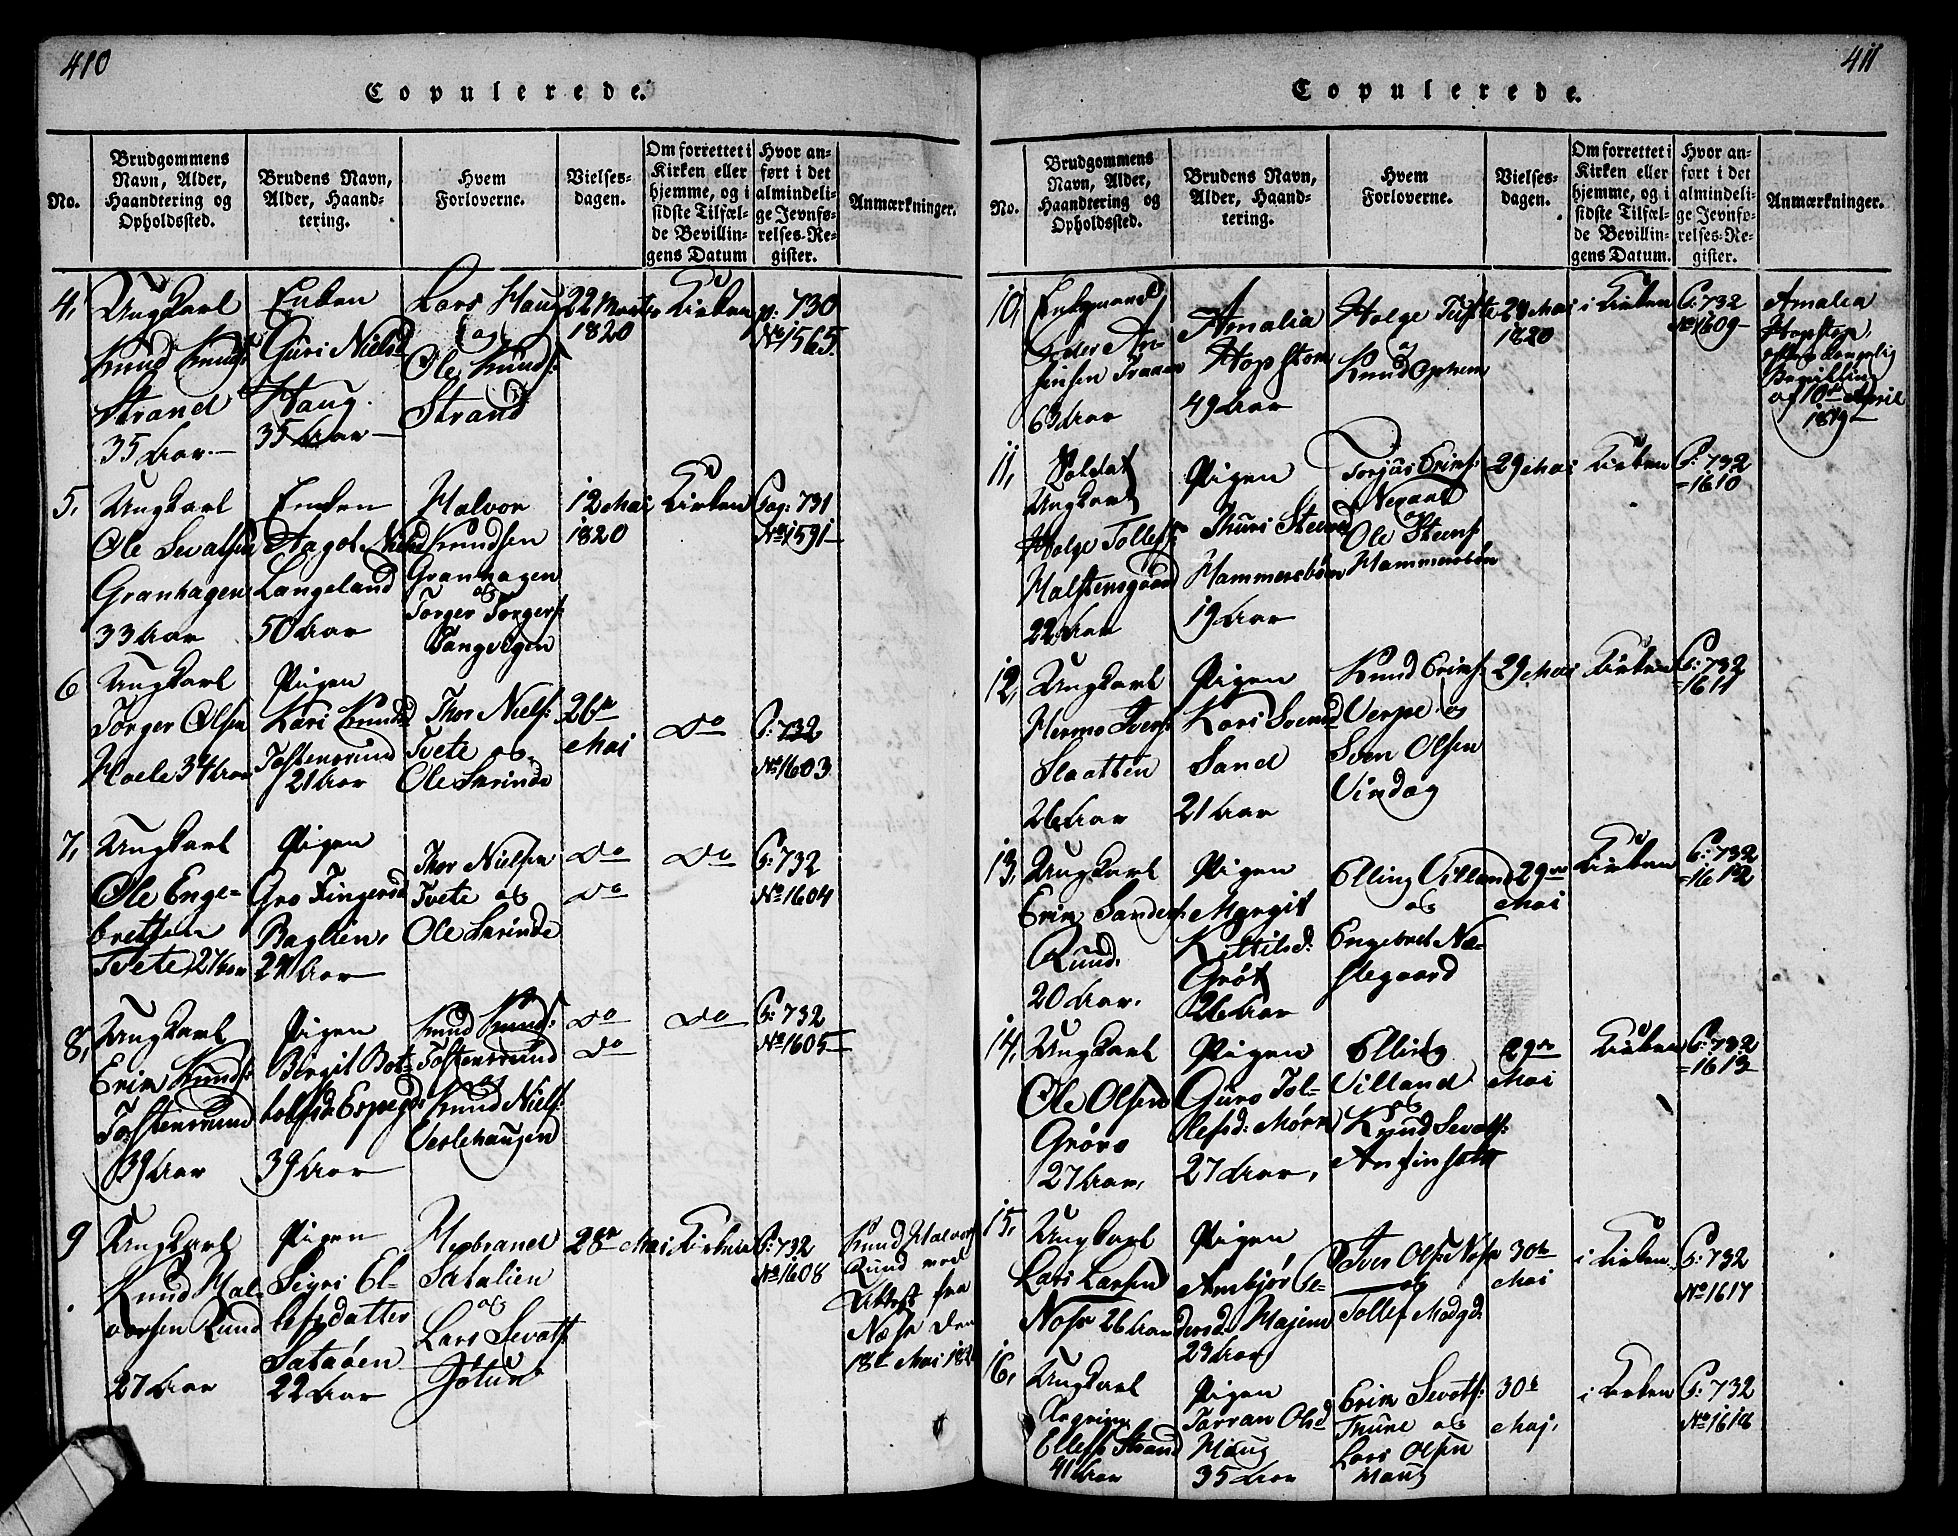 410
Copulerede.
No.
Brudgommens
Navn, Alder,
Haandtering og
Opholdssted.
Brudens Navn,
Alder, Haand-
tering.
Hvem
Forloverne.
Vielses-
dagen.
Om forrettet i
Kirken eller
hjemme, og i
sidste Tilfæl-
de Bevillin-
gens Datum
Hvor an-
ført i det
almindeli-
ge Jevnfø-
relses-Re-
gister.
Anmærkninger.
4,
Ungkarl
Knud Knuds:
Strand
35 Aar.—
Enken
Guri Nielsd
Haug.
35 Aar—
Lars Haug
og
Ole Knuds:
Strand
22 Marts
1820
Kirken
p: 730
No 1565.
5,
Ungkarl
Ole Sevatsen
Granhagen
33 Aar
Enken
Aagot Nielsd
Langeland
50 Aar
Halvor
Knudsen
Granhagen
og
Torger Torgers:
12 Mai
1820
Kirken
Pag: 731
No 1591—
6
Ungkarl
Torger Olsen
Hoele 34 Aar
Pigen
Kari Knudsd
Tostensrund
21 Aar
Thor Niels:
Tvete og
Ole Sarinde
26de
Mai
Do
P: 732
No 1603
7,
Ungkarl
Ole Enge=
bretsen
Tvete, 27 Aar
Pigen
Gro Fingersd
Baglien,
24 Aar
Thor Nielsen
Tvete og
Ole Sarinde
Do
Do
Do
P: 732
No 1604
8,
Ungkarl
Erik Knuds:
Tostensrund
39 Aar
Pigen
Birgit Bot=
tolfsd: Espegd:
39 Aar
Knud Knuds:
Tostensrund
og
Knud Niels:
Veslehaugen
Do
Do
Do
P: 732
No 1605—
9
Ungkarl
Knud Hal=
vorsen Rund
27 Aar
Pigen
Sigri El=
lefsdatter
Sataøen
22 Aar
Hysbrand
Satalien
og
Lars Sevats:
28de Mai
Kirken
P: 732
No 1608
Knud Halvors
Rund med
Attest fra
Næss den
18de Mai 182
411
Copulerede.
No.
Brudgommens
Navn, Alder,
Haandtering og
Opholdssted.
Brudens Navn,
Alder, Haand-
tering.
Hvem
Forloverne.
Vielses-
dagen.
Om forrettet i
Kirken eller
hjemme, og i
sidste Tilfæl-
de Bevillin-
gens Datum.
Hvor an-
ført i det
almindeli-
ge Jevnfø-
relses-Re-
gister.
Anmærkninger.
10,
Enkemand
Peder An-
63 Aar
Amalia
Hopstok
49 Aar
Holge Tufte
og
Knud Opheim
29 Mai
1820
i Kirken
P: 732
No 1609—
Amalia
Hopstok,
efter kongelig
Bevilling
af 10de April
1819—
11,
Soldat
Ungkarl
Holge Tollefs:
Halstensgaard
22 Aar
Pigen
Thuri Steensd
Hammersbøn
19 Aar
Torjus Eriks:
Nøgaat
og
Ole Steens:
Hammersbøn
29 Mai
Kirken
P: 732
=1610
12,
Ungkarl
Hermo Ivers:
Slaatten
26 Aar
Pigen
Kari Svensd
Sand
21 Aar
Knud Eriks:
Verpe og
Sven Olsen
Vindeg
29 Mai
Kirken
P: 732
=1611
13,
Ungkarl
Erik Sanders:
Rund.
20 Aar.
Pigen
Margit
Kittilsd:
Grøt
26 Aar
Elling Villand
og
Engebret Næ=
stegaard
29de
Mai
Kirken
P: 732
=1612
14,
Ungkarl
Ole Olsen
Grøra
27 Aar,
Pigen
Guro Tol=
lefsd: Mørk
27 Aar,
Elling
Villand
og
Knud Sevats:
Anfinset
29de
Mai
Kirken
P: 732
=1613
15,
Ungkarl
Lars Larsen
Noss 26 Aar
Pigen
Ambjør Se=
dersd: Majem
23 Aar
Iver Olsen Noss
og
Tollef Medgd:
30te
Mai
i Kirken.
P: 732
No 1617
16,
Ungkarl
Asgrim
Ellefs: Strand
41 Aar
Pigen
Tarran Olsd
Haug
35 Aar
Erik Sevats:
Trune og
Lars Olsen
Haug
30te
Maj,
i Kirken
P: 732
No 1618